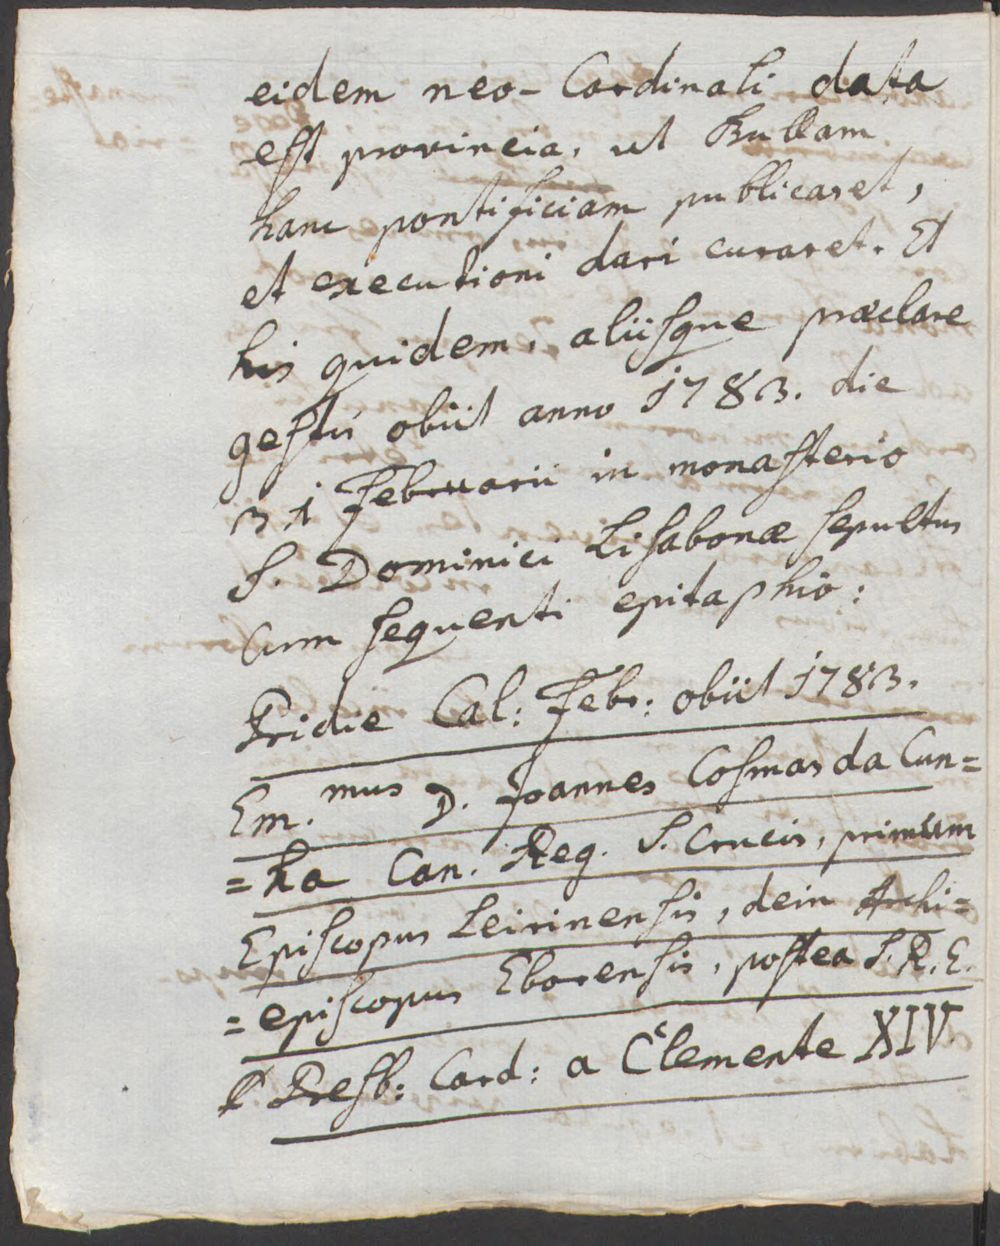 eidem neo-Cardinali data
est provincia, ut Bullam
hanc pontificiam publicaret,
et executioni dari curaret. Et
his quidem, aliisque præclare
gestis obiit anno 1783. die
31 Februarii in monasterio
S. Dominici Lisabonæ sepultus
cum sequenti epitaphio:
Pridie Cal: Febr: obiit 1783.
Em.mus D. Joannes Cosmas da Cun=
=ha Can. Reg. S. Crucis, primum
Episcopus Leirinensis, dein Archi=
=episcopus Eborensis, postea S.R.E.
Presb: Card: a Clemente XIV